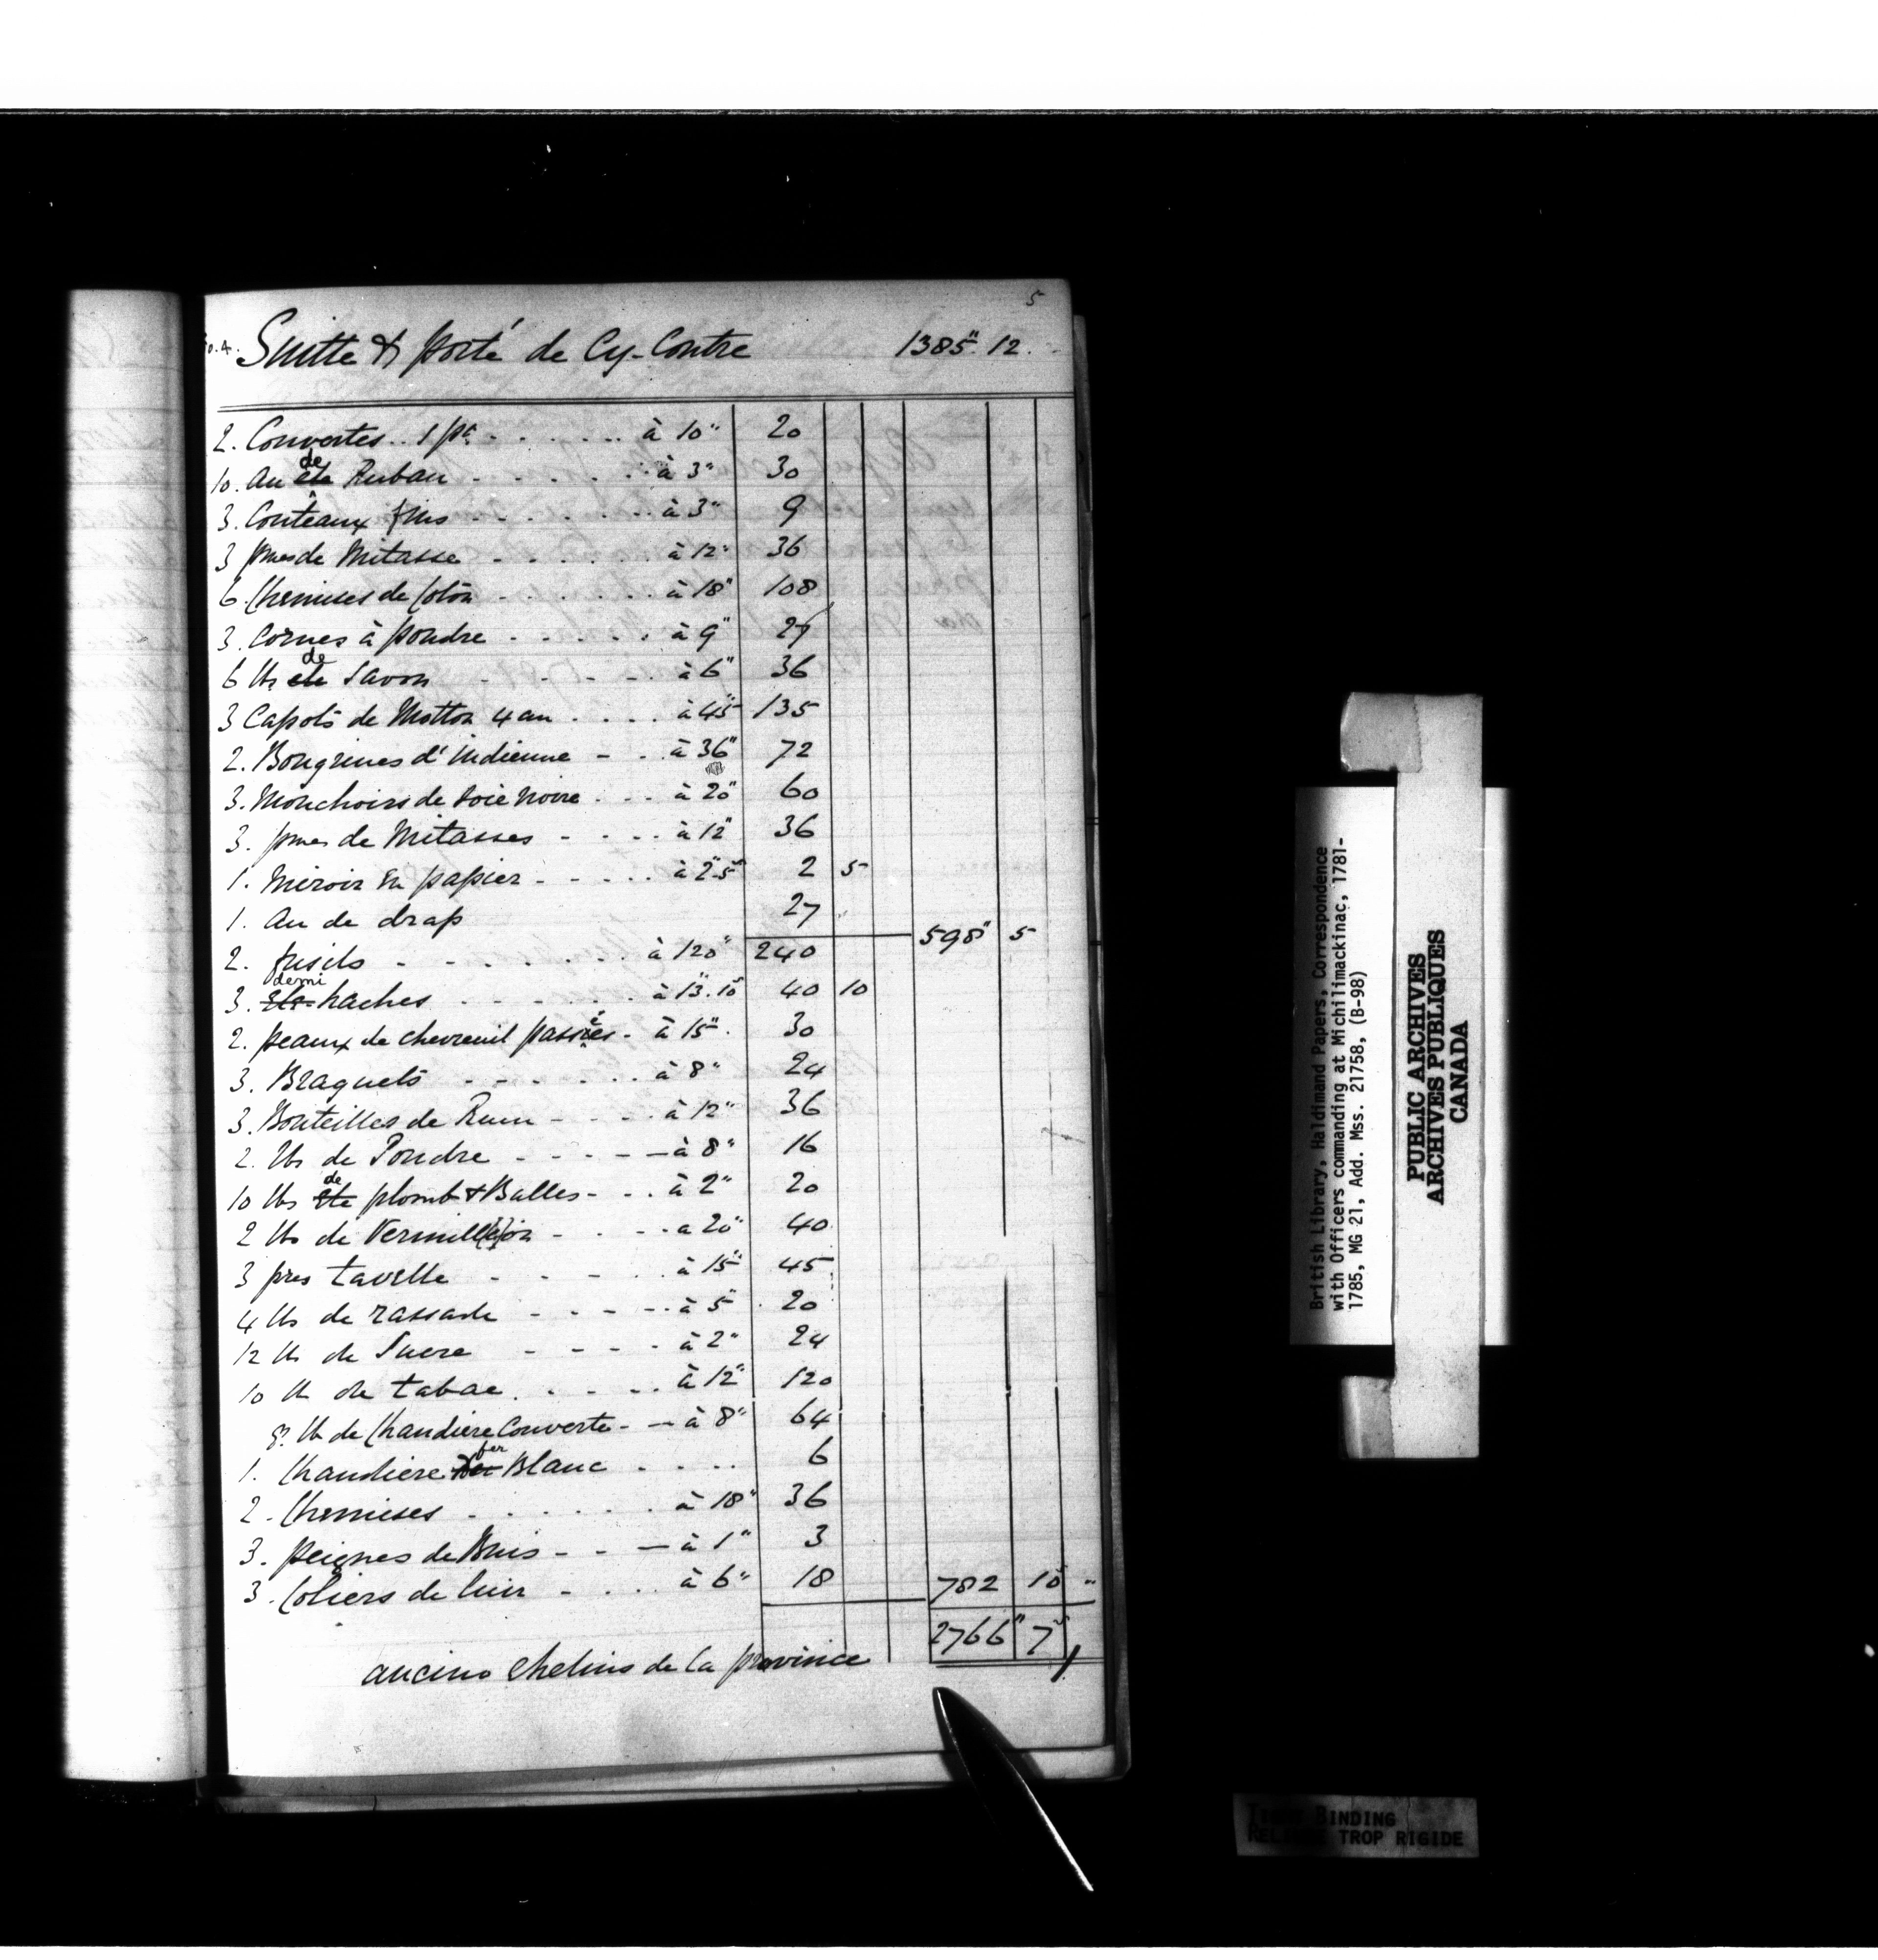 5
fo. 4. Suitte & porté de Cy-Contre 1385" 12.
2. Couvertes .. 1 pt. . . . . . à 10" 20
10. au de Ruban - - - - - - à 3" 30
3. Couteaux fins - - - - - - à 3" 9
3 pres de Mitasse - - - - - à 12" 36
6. Chemises de Coton - - - - à 18" 108
3. Cornes à poudre - - - - - à 9" 27
6 lbs de Savon - - - - - à 6" 36
3 Capots de Motton 4 au . . . . à 45" 135
2. Bougrines d'indienne - - . à 36" 72
3. Mouchoirs de soie noire . . . à 20" 60
3. pres de Mitasses - - - - à 12" 36
1. Miroir En papier - - - - . à 2" 5 2 5
1. Au de drap 27
598" 5
2. fusils - - - - - - - à 120" 240
3. demi haches - - - - - - à 13". 10 40 10
2. peaux de chevreuil passées - à 15". 30
3. Braquets - - - - - - à 8" 24
3. Bouteilles de Rum - - - - à 12" 36
2. lbs de Poudre - - - - - à 8" 16
10 lbs de plomb & Balles - - . à 2" 20
2 lbs de Vermillion - - - - a 20" 40
3 pres tavelle - - - - . à 15" 45
4 lbs de rassade - - - - - à 5" 20
12 lb de Sucre - - - - à 2" 24
10 lb de tabac . - - - . à 12" 120
8. lb de Chaudiere Couverte - - à 8" 64
1. Chaudiere fer Blanc . . . . . 6
2. Chemises - - - - - - à 18" 36
3. peignes de Buis - - - à 1" 3
3. Coliers de Cuir - - . . . à 6" 18
782 10 "
2766" 7
ancino Chelins de la province
British Library, Haldimand Papers, Correspondence
with Officers commanding at Michilimackinac, 1781-
1785, MG 21, Add. Mss. 21758, (B-98)
PUBLIC ARCHIVES
ARCHIVES PUBLIQUES
CANADA
BINDING
TROP RIGIDE